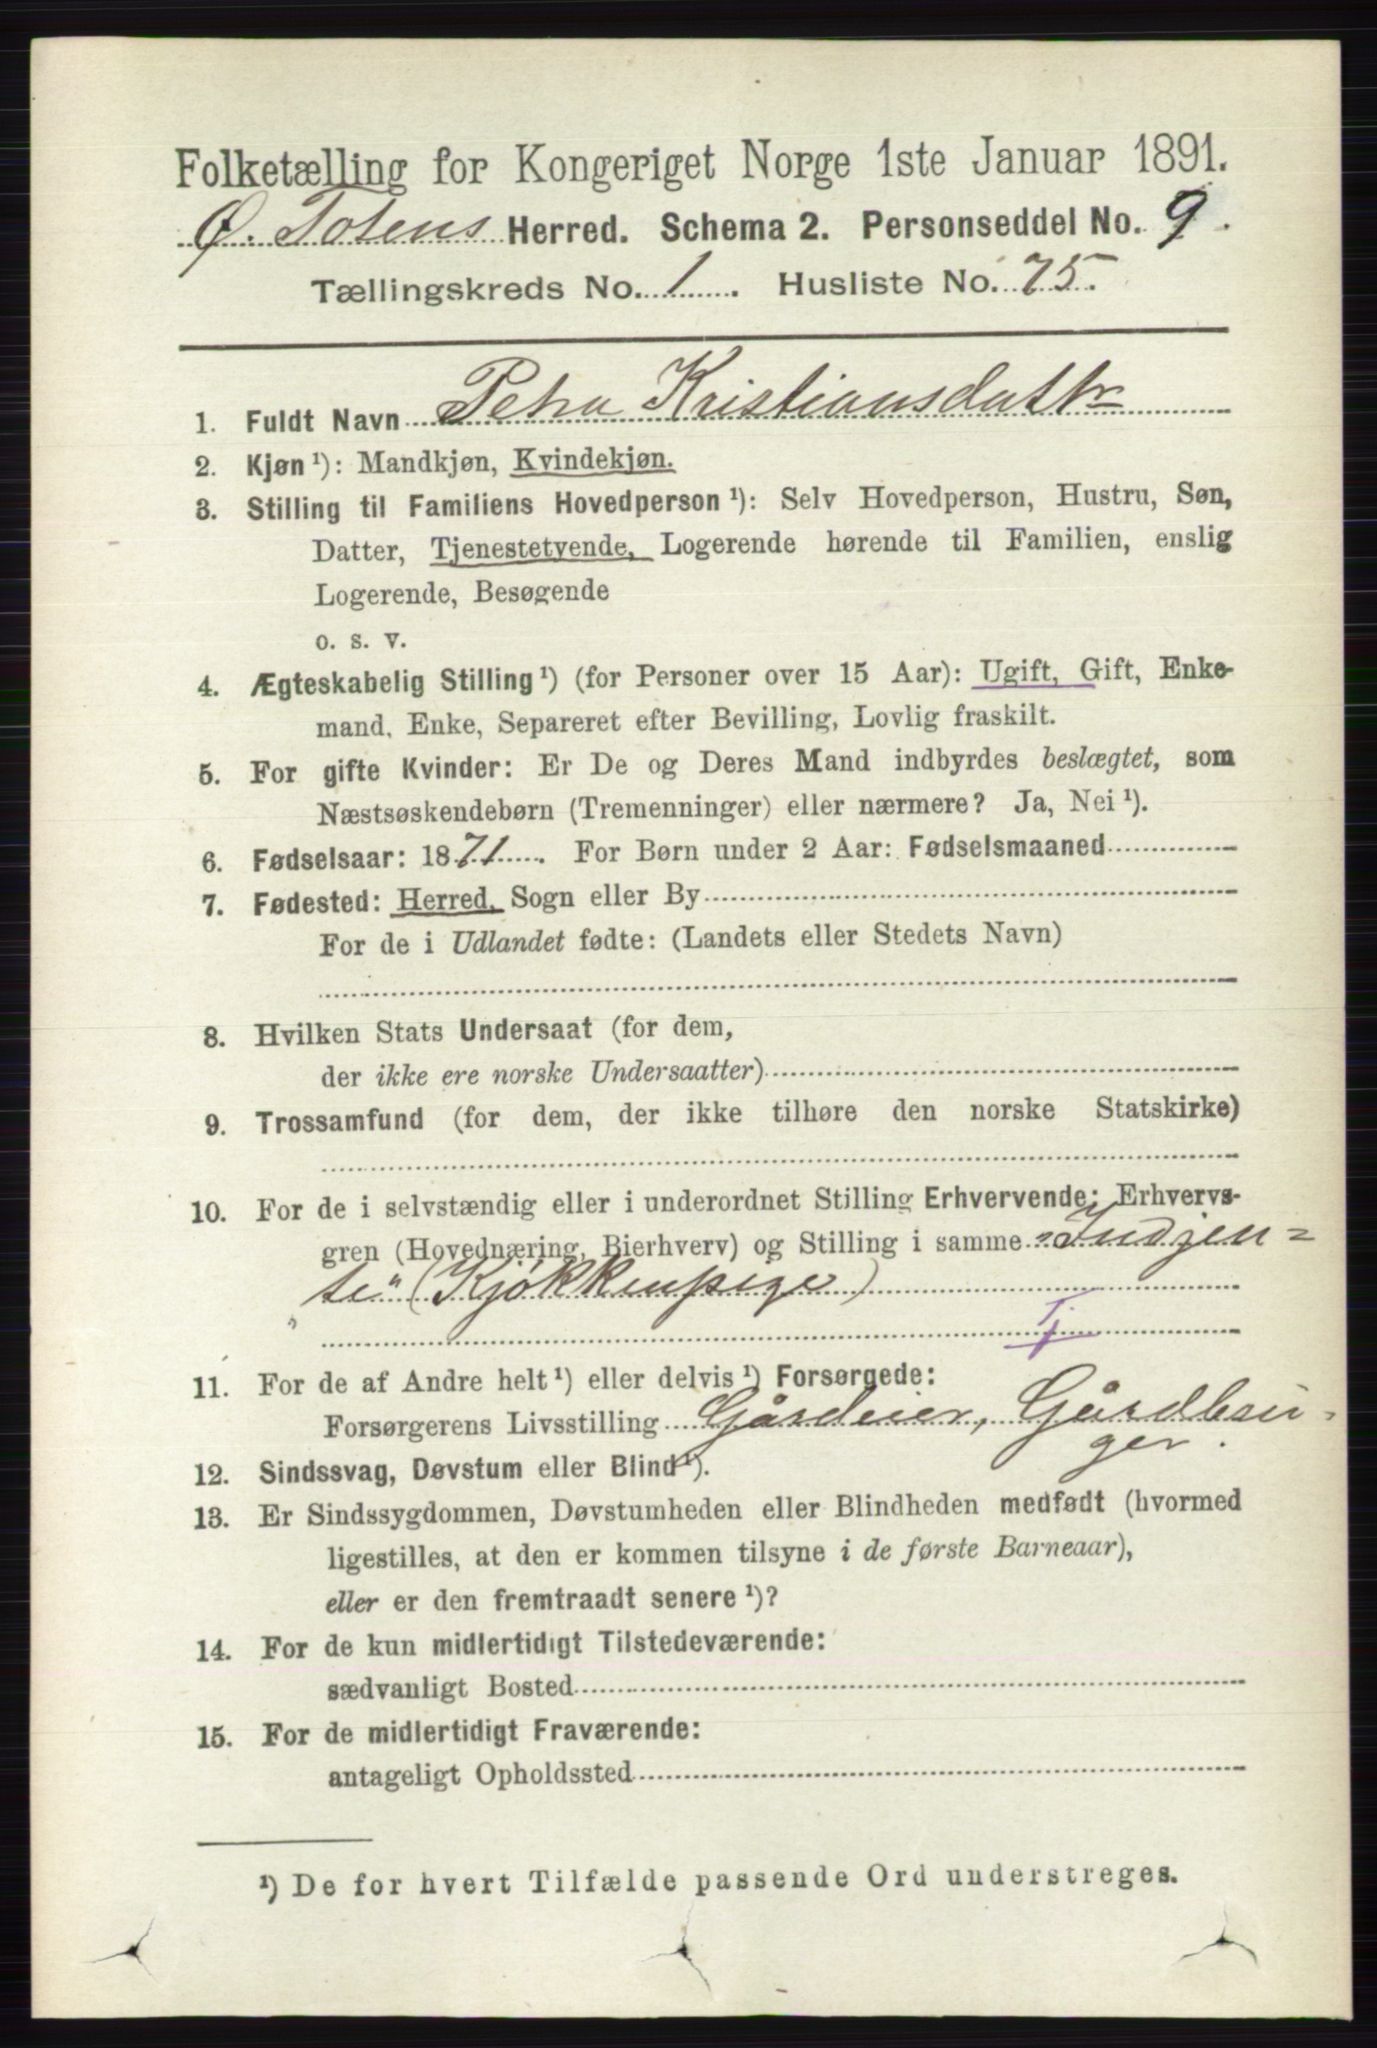 Folketælling for Kongeriget Norge 1ste Januar 1891.
Ø. Totens Herred. Schema 2. Personseddel No. 9.
Tællingskreds No. 1. Husliste No. 75.
1. Fuldt Navn Petra Kristiansdattr
2. Kjøn ¹): Mandkjøn, Kvindekjøn.
3. Stilling til Familiens Hovedperson ¹): Selv Hovedperson, Hustru, Søn,
Datter, Tjenestetyende, Logerende hørende til Familien, enslig
Logerende, Besøgende
o. s. v.
4. Ægteskabelig Stilling ¹) (for Personer over 15 Aar): Ugift, Gift, Enke-
mand, Enke, Separeret efter Bevilling, Lovlig fraskilt.
5. For gifte Kvinder: Er De og Deres Mand indbyrdes beslægtet, som
Næstsøskendebørn (Tremenninger) eller nærmere? Ja, Nei ¹).
6. Fødselsaar: 1871. For Børn under 2 Aar: Fødselsmaaned
7. Fødested: Herred, Sogn eller By
For de i Udlandet fødte: (Landets eller Stedets Navn)
8. Hvilken Stats Undersaat (for dem,
der ikke ere norske Undersaatter)
9. Trossamfund (for dem, der ikke tilhøre den norske Statskirke)
10. For de i selvstændig eller i underordnet Stilling Erhvervende: Erhvervs-
gren (Hovednæring, Bierhverv) og Stilling i samme "Indjen=
te" (Kjøkkenpige)
11. For de af Andre helt ¹) eller delvis ¹) Forsørgede:
Forsørgerens Livsstilling Gårdeier, Gårdbru-
ger.
12. Sindssvag, Døvstum eller Blind ¹).
13. Er Sindssygdommen, Døvstumheden eller Blindheden medfødt (hvormed
ligestilles, at den er kommen tilsyne i de første Barneaar),
eller er den fremtraadt senere ¹)?
14. For de kun midlertidigt Tilstedeværende:
sædvanligt Bosted
15. For de midlertidigt Fraværende:
antageligt Opholdssted
¹) De for hvert Tilfælde passende Ord understreges.